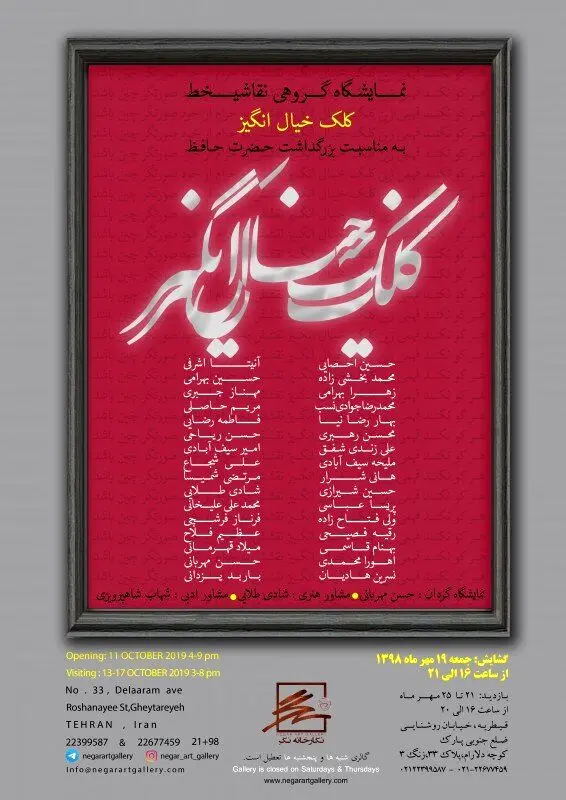 نمایشگاه گروهی نقاشیخط
کلک خیال انگیز
به مناسبت بزرگداشت حضرت حافظ
کلک خیال انگیز
حسین احصایی
محمد بخشی زاده
زهرا بهرامی
محمدرضاجوادی‌نسب
بهار رضا نیا
محسن رهبری
علی زندی شفق
ملیحه سیف آبادی
هانی شرار
حسین شیرازی
پریسا عباسی
ولی فتاح زاده
رقیه فصیحی
بهنام قاسمی
اهورا محمدی
نسرین هادیان
آنیتا اشرفی
حسین بهرامی
مهناز جیری
مریم حاصلی
فاطمه رضایی
حسن ریاحی
امیر سیف آبادی
علی شجاع
مرتضی شمیسا
شادی طلایی
محمدعلی علیخانی
فرناز فرشچی
عظیم فلاح
میلاد قهرمانی
حسن مهربانی
باربد یزدانی
نمایشگاه گردان : حسن مهربانی • مشاور هنری : شادی طلایی • مشاور ادبی : شهاب شاهپرویزی
گشایش: جمعه ۱۹ مهر ماه ۱۳۹۸
از ساعت ۱۶ الی ۲۱
بازدید: ۲۱ تا ۲۵ مهر ماه
از ساعت ۱۶ الی ۲۰
قیطریه، خیابان روشنایی
ضلع جنوبی پارک
کوچه دلارام، پلاک ۳۳، زنگ ۳
۰۲۱-۲۲۶۷۷۴۵۹ - ۰۲۱۲۲۳۹۹۵۸۷
Opening: 11 OCTOBER 2019 4-9 pm
Visiting : 13-17 OCTOBER 2019 3-8 pm
No . 33 , Delaaram ave
Roshanayee St,Gheytareyeh
TEHRAN , Iran
22399587 & 22677459 21+98
negarartgallery negar_art_gallery
Info@negarartgallery.com
نگارخانه نگر
گالری شنبه ها و پنجشنبه ها تعطیل است.
Gallery is closed on Saturdays & Thursdays
www.negarartgallery.com